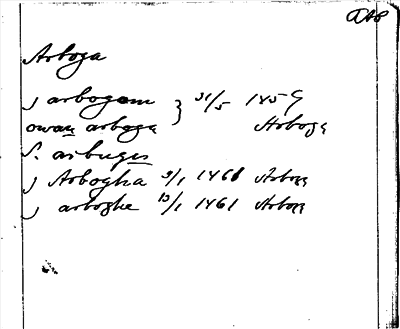 DAP
Arboga
j arbogom } 31/5 1459
owan arboga Arboga
S. arbugis
j Arbogha 9/1 1461 Arboga
j arboghe 13/1 1461 Arboga